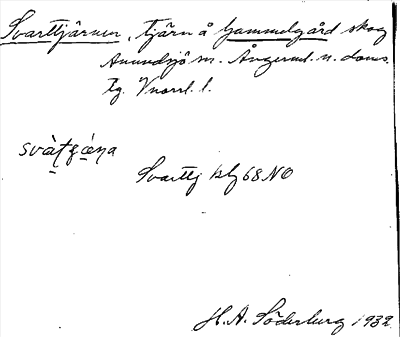 Svarttjärnen, tjärn å Gammelgård skog
Anundsjö sn. Ångerml. n. doms.
tg. Vnorrl. l.
svàt̠ɟǽn̠a
Svarttj blg 68 NO
H. A. Söderberg 1932